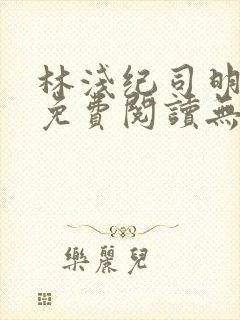 林淺紀司明
免費閱讀無
樂麗兒